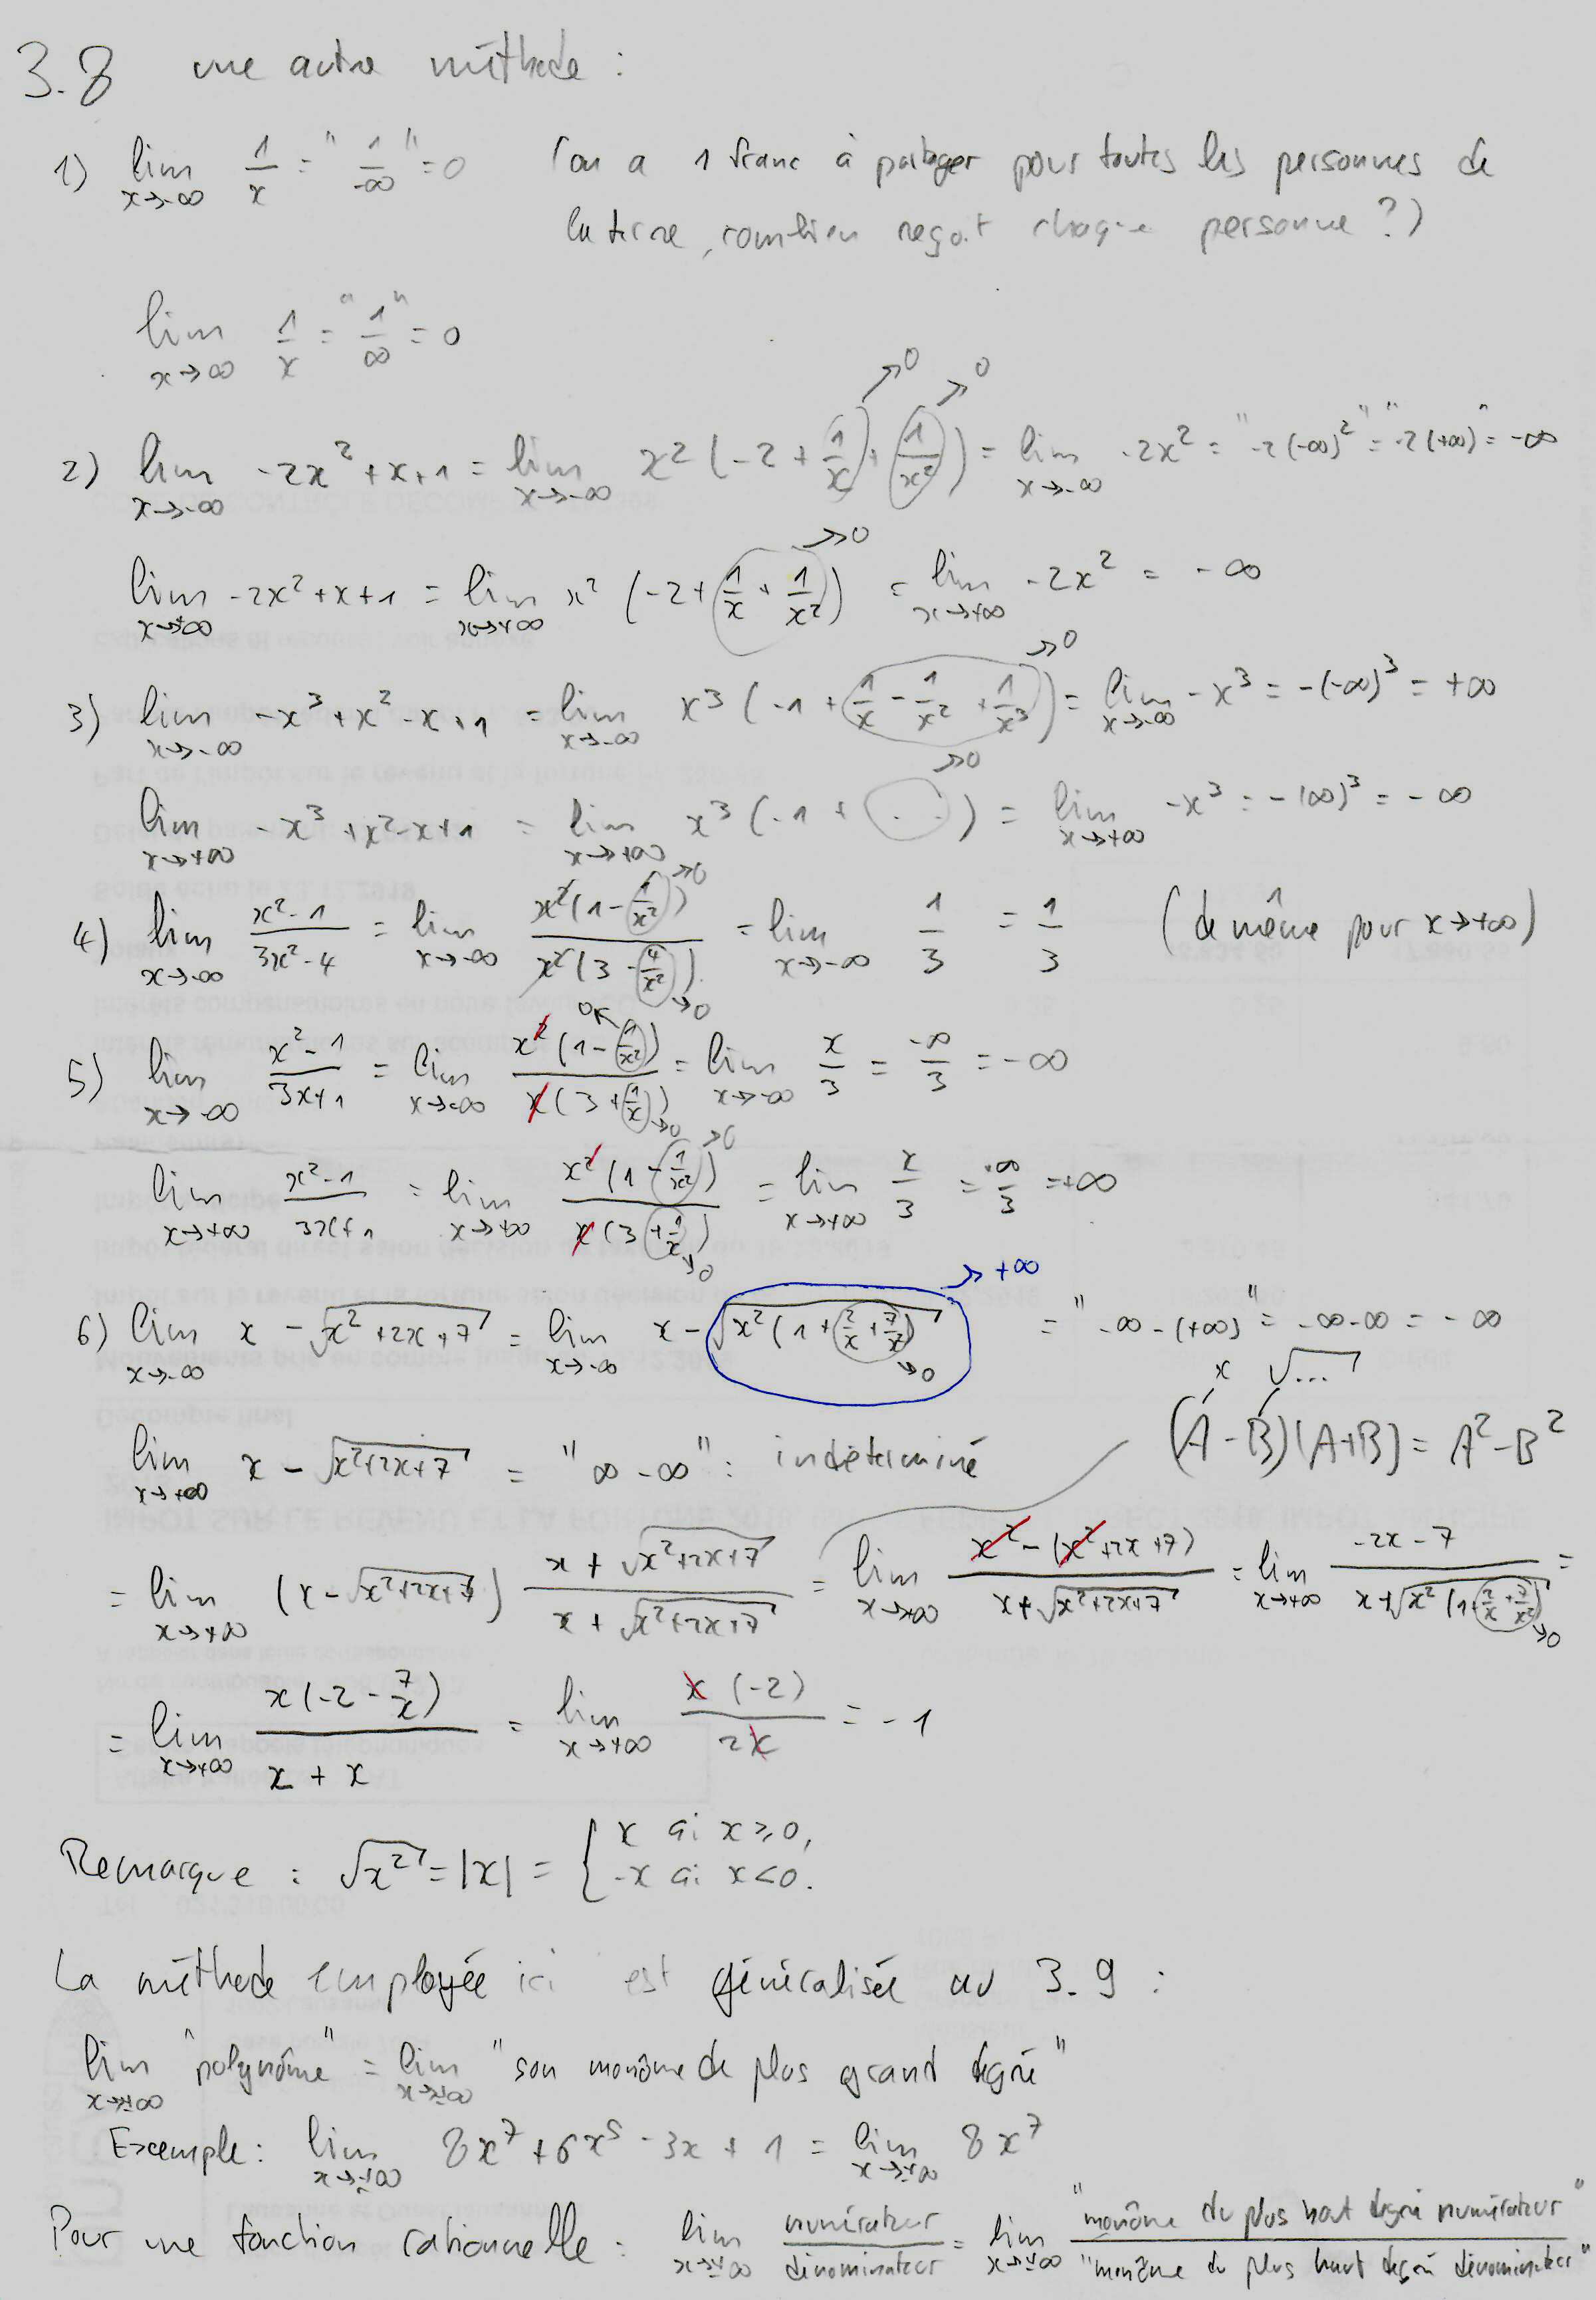 3.8 une autre méthode :
1) lim x→-∞ 1/x = "1/-∞" = 0 (on a 1 franc à partager pour toutes les personnes de
la terre, combien reçoit chaque personne ?)
lim x→∞ 1/x = "1/∞" = 0
2) lim x→-∞ -2x² + x + 1 = lim x→-∞ x² (-2 + 1/x + 1/x²) = lim x→-∞ -2x² = "-2(-∞)²" = "-2(+∞)" = -∞
→0 →0
lim x→+∞ -2x² + x + 1 = lim x→+∞ x² (-2 + 1/x + 1/x²) = lim x→+∞ -2x² = -∞
→0
3) lim x→-∞ -x³ + x² - x + 1 = lim x→-∞ x³ (-1 + 1/x - 1/x² + 1/x³) = lim x→-∞ -x³ = -(-∞)³ = +∞
→0
lim x→+∞ -x³ + x² - x + 1 = lim x→+∞ x³ (-1 + ...) = lim x→+∞ -x³ = -(∞)³ = -∞
→0
4) lim x→-∞ (x² - 1)/(3x² - 4) = lim x→-∞ x²(1 - 1/x²)/x²(3 - 4/x²) = lim x→-∞ 1/3 = 1/3 (de même pour x→+∞)
→0 →0
5) lim x→-∞ (x² - 1)/(3x + 1) = lim x→-∞ x²(1 - 1/x²)/x(3 + 1/x) = lim x→-∞ x/3 = -∞/3 = -∞
0← →0
lim x→+∞ (x² - 1)/(3x + 1) = lim x→+∞ x²(1 - 1/x²)/x(3 + 1/x) = lim x→+∞ x/3 = ∞/3 = +∞
→0 →0
6) lim x→-∞ x - √(x² + 2x + 7) = lim x→-∞ x - √(x²(1 + 2/x + 7/x²)) = "-∞ - (+∞)" = -∞ - ∞ = -∞
→+∞ →0
x √...
lim x→+∞ x - √(x² + 2x + 7) = "∞ - ∞" : indéterminé (A - B)(A + B) = A² - B²
= lim x→+∞ (x - √(x² + 2x + 7)) (x + √(x² + 2x + 7))/(x + √(x² + 2x + 7)) = lim x→+∞ (x² - (x² + 2x + 7))/(x + √(x² + 2x + 7)) = lim x→+∞ (-2x - 7)/(x + √(x²(1 + 2/x + 7/x²))) =
→0
= lim x→+∞ x(-2 - 7/x)/(x + x) = lim x→+∞ x(-2)/2x = -1
Remarque : √x² = |x| = { x si x ≥ 0,
-x si x < 0.
La méthode employée ici est généralisée au 3.9 :
lim x→±∞ "polynôme" = lim x→±∞ "son monôme de plus grand degré"
Exemple : lim x→±∞ 8x⁷ + 6x⁵ - 3x + 1 = lim x→±∞ 8x⁷
Pour une fonction rationnelle : lim x→±∞ numérateur/dénominateur = lim x→±∞ "monôme du plus haut degré numérateur"/"monôme du plus haut degré dénominateur"